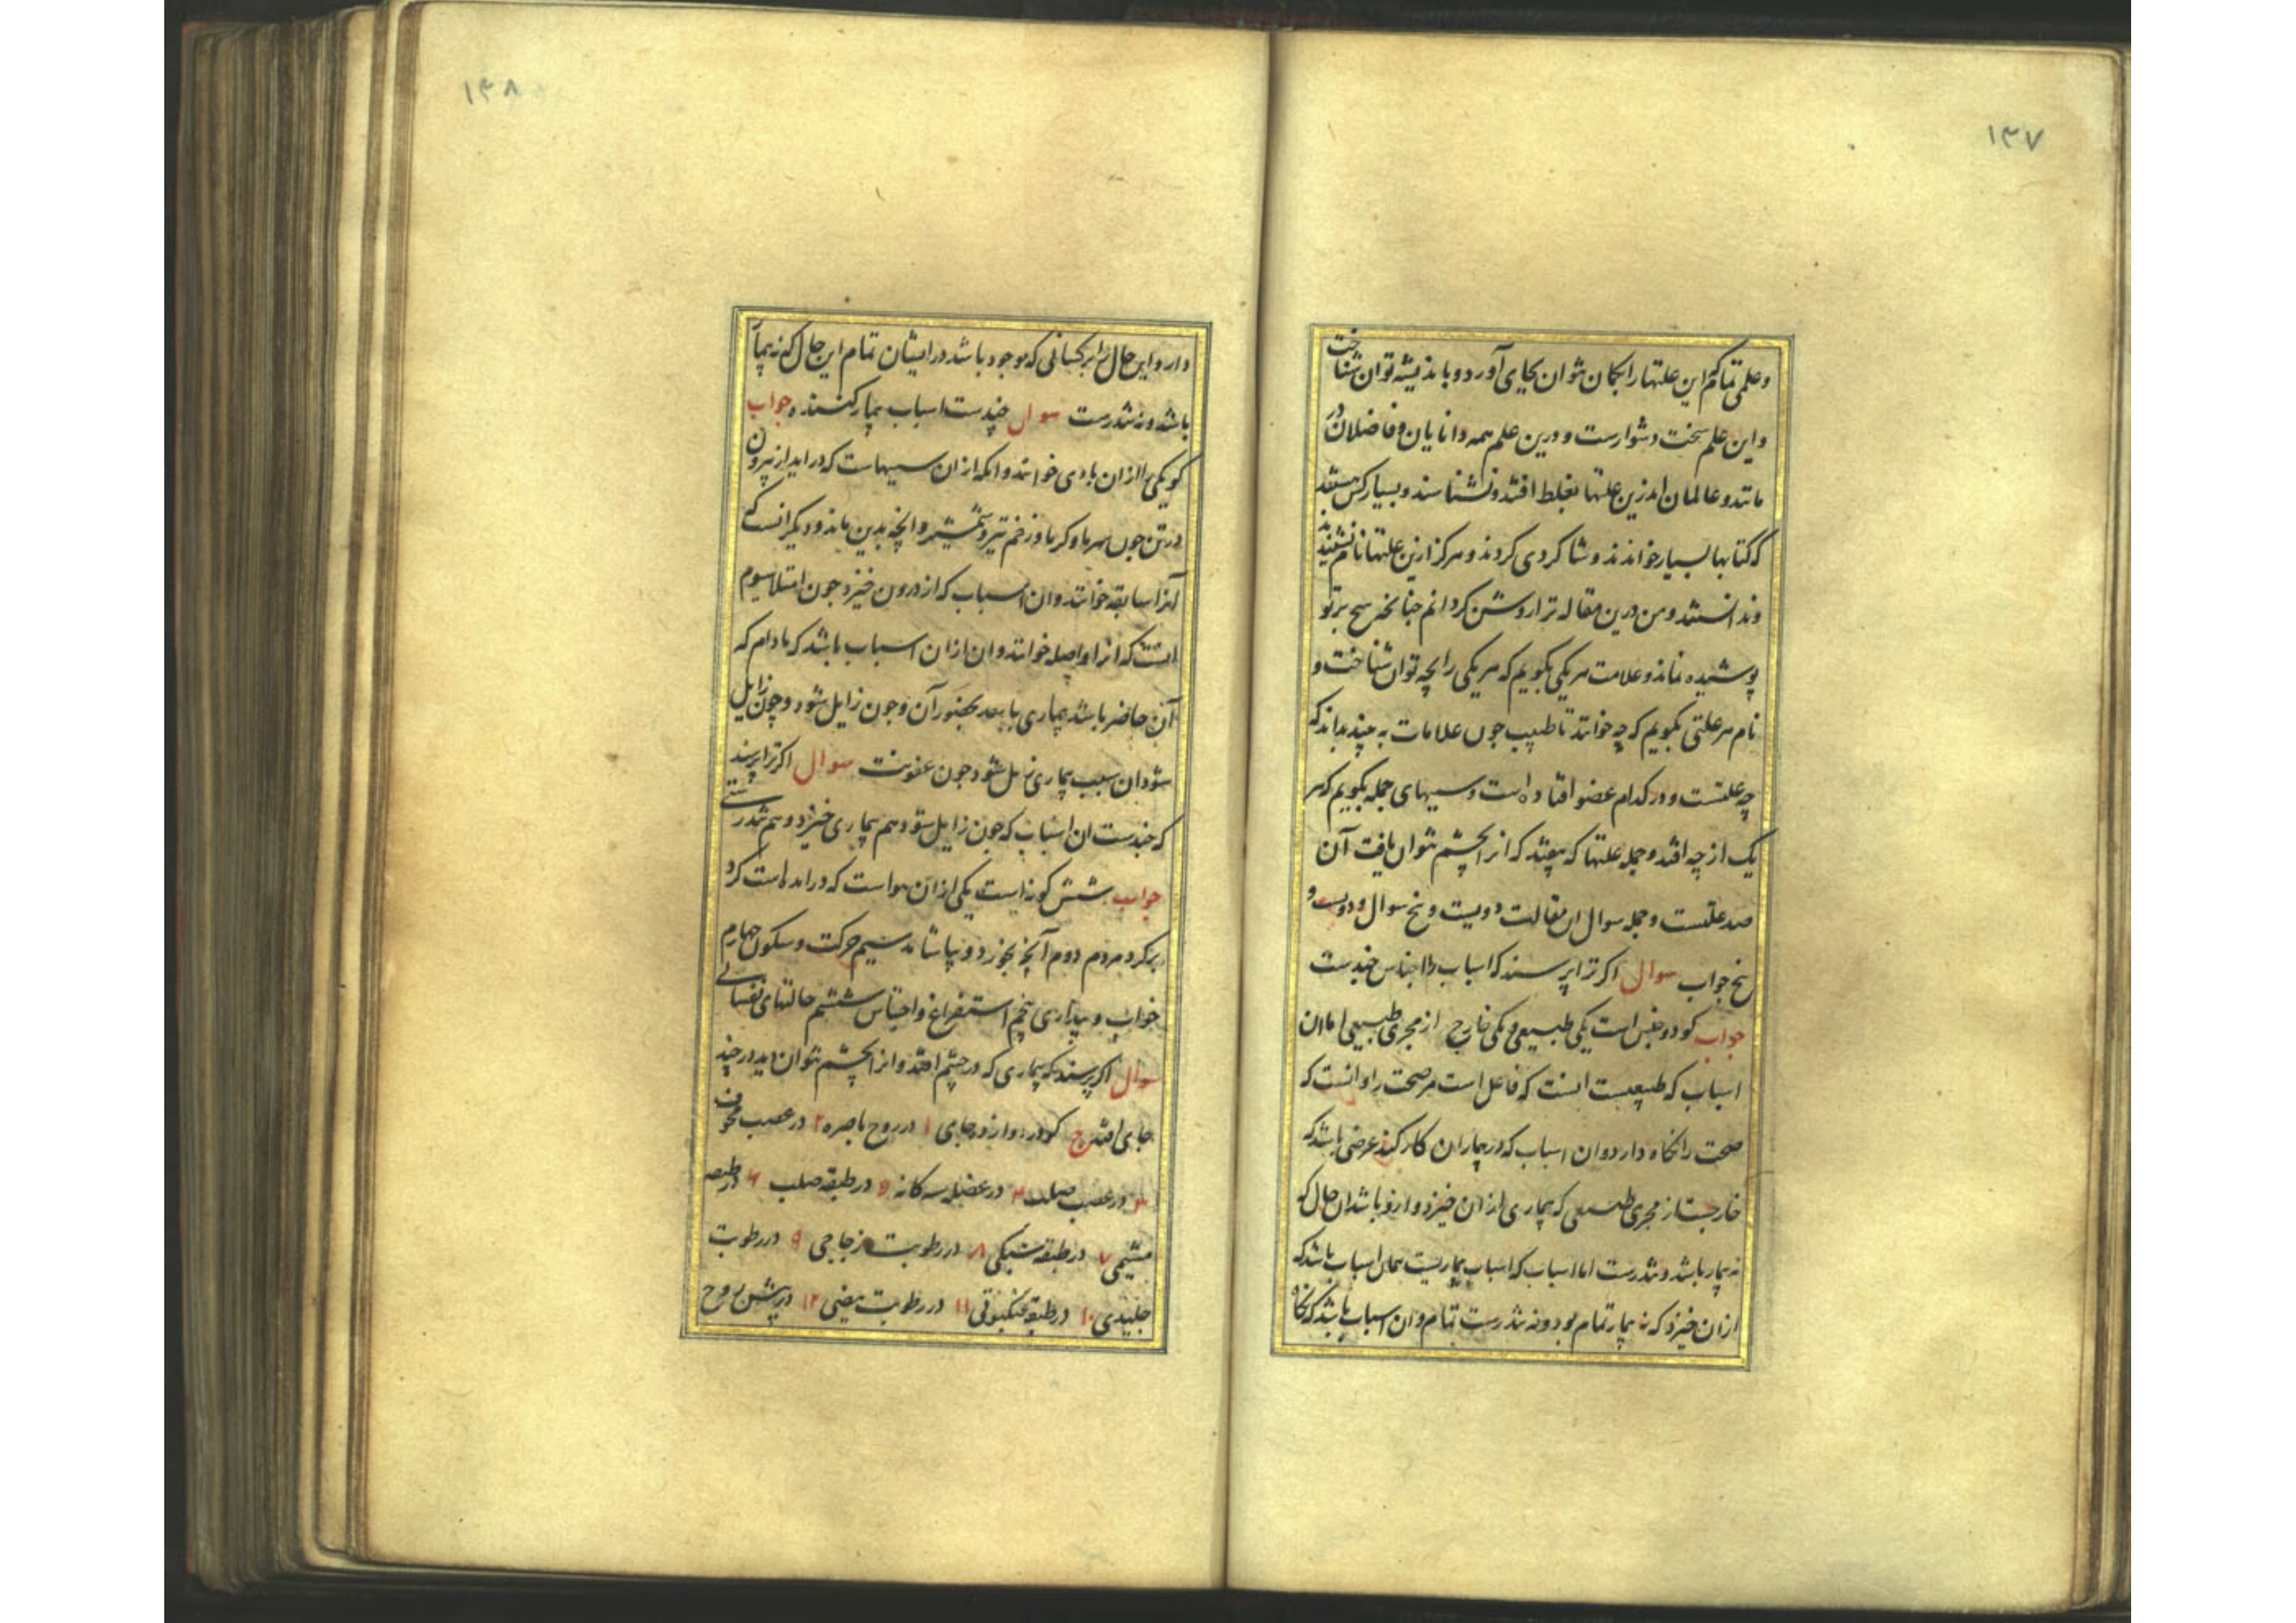 ۱۳۷
و علمی تمامکم این علتها را بکمان نتوان بجای آورد و باندیشه توان شناخت
و این علم سخت دشوارست و درین علم همه دانایان و فاضلان در
ماتند و عالمان اندرین علتها بغلط افتند و نشناسند و بسیار کس هستند
که کتابها بسیار خواندند و شاکردی کردند و هرکز ازین علتها نام نشنیدند
و ندانستند و من درین مقاله ترا روشن کردانم جنانکه هیح برتو
پوشیده نماند و علامت هر یکی بکویم که هر یکی را بچه توان شناخت و
نام هر علتی بکویم که چه خوانند تا طبیب جون علامات به بیند بداند که
چه علتست و در کدام عضو افتاده است و سببهای جمله بکویم که هر
یک از چه افتد و جمله علتها که بیفتد که انرا بچشم نتوان یافت آن
صد علتست و جمله سوال این مقالت دویست و پنج سوال و دویست و
پنج جواب سوال اکر ترا پرسند که اسباب را اجناس جندست
جواب کو دو جنس است یکی طبیعی و یکی خارج از مجری طبیعی اما ان
اسباب که طبیعیست انست که فاعل است مر صحت را و انست که
صحت را نکاه دارد و ان اسباب که در بیماران کار کند عرضی باشد که
خارجست از مجری طبیعی که بیماری از ان خیزد و ازو باشد ان حال که
نه بیمار باشد و نه تندرست اما اسباب که اسباب بیماریست همان اسباب باشد که
ازان خیزد که نه بیمار تمام بود و نه تندرست تمام و ان اسباب باشد که نکاه
۱۳۸
دارد این حال را بر کسانی که موجود باشد در ایشان تمام این حال که نه بیمار
باشد و نه تندرست سوال جندست اسباب بیمار کنند جواب
کو یکی را ازان بادی خوانند و انکه ازان سببهاست که در اید از بیرون
در تن جون سرما و کرما و زخم تیر و شمشیر و انچه بدین ماند و دیکر انست که
انرا سابقه خوانند و ان اسباب که از درون خیزد جون امتلا سیوم
انست که انرا واصله خوانند و ان ازان اسباب باشد که مادام که
آن حاضر باشد بیماری باشد بحضور آن و جون زایل شود و جون زایل
شود ان سبب بیماری زایل شود جون عفونت سوال اکر ترا پرسند
که جندست ان اسباب که جون زایل شود هم بیماری خیزد و هم تندرستی
جواب شش کونه است یکی ازان هواست که در امده است کرد
برکرد مردم دوم آنچه بخورد و بیاشامد سیم حرکت و سکون جهارم
خواب و بیداری پنجم استفراغ و احتباس ششم حالتهای نفسانی
سوال اکر پرسند که بیماری که در چشم افتد و انرا بچشم نتوان دید در جند
جای افتد ج کو در دوازده جای ۱ در روح باصره ۲ در عصب مجوف
۳ در عصب صلب ۴ در عضله سه کانه ۵ در طبقه صلب ۶ در طبقه
مشیمی ۷ در طبقه شبکی ۸ در رطوبت زجاجی ۹ در رطوبت
جلیدی ۱۰ در طبقه عنکبوتی ۱۱ در رطوبت بیضی ۱۲ در پیش روح